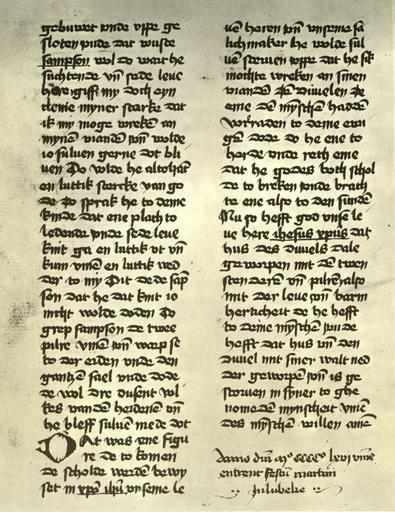 gebuwet vnde vppe ge
sloten vnde dat wuste
sampson wol do wart he
suchtende vn̄ sede leue
here giff my doch eyn
clenie myner starke dat
ik my moge wrekē an
mynē viandē wolde
io suluen gerne dot bli
uen Do wolde he altohāt
en luttik stercke van go
de Do sprak he to deme
kinde dat ene plach to
ledende vnde sede leue
kint ga en luttik vt vn̄
kum vmē en luttik wed
der to my Dit dede sāp
son dat he dat kint io
nicht wolde doden Do
grep sampson de twee
pilre vmē vn̄ warp se
to der erden vnde den
gantzē sael vnde dode
de wol dre dusent vol
kes vandē heidenē vn̄
he bleff suluē mede dot
Dat was ene figu
re de to komen
de scholde werdē bewy
set in xpō ihū vnseme le
uē heren vn̄ vnseme sa
lichmaker he wolde sul
uē steruen vppe dat he sik
mochte wreken an sinen
viandē dē duuelen de
eme dē mȳschē haddē
vorraden to deme ewi
gē dode do he ene to
horde vnde reth eme
dat he godes both schol
de to breken vnde brach
te ene also to den sundē
Nu so hefft god vnse le
ue here ihesus xpūs dat
hus des duuels dale
geworpen mit dē twen
stenderē vn̄ pilrē also
mit der leue vn̄ barm
herticheit de he hefft
to deme mȳschē vnde
hefft dat hus vn̄ den
duuel mit siner walt ned
der geworpē vn̄ is ge
storuen in syner to ghe
nomedē mynscheit vmē
des mȳschē willen amē
Anno dn̄i mº cccc lxvj vme
entrent festū martini
in lubeke